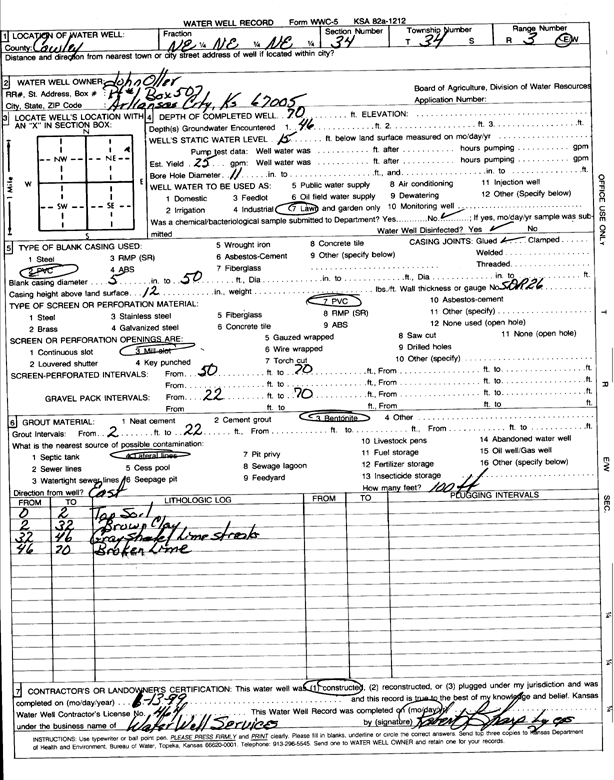 WATER WELL RECORD Form WWC-5 KSA 82a-1212
1 LOCATION OF WATER WELL: Fraction Section Number Township Number Range Number
County: Cowley NE ¼ NE ¼ NE ¼ 34 T 34 S R 3 E/W
Distance and direction from nearest town or city street address of well if located within city?
2 WATER WELL OWNER: John Oller
RR#, St. Address, Box #: Rt #1 Box 507 Board of Agriculture, Division of Water Resources
City, State, ZIP Code: Arkansas City, Ks 67005 Application Number:
3 LOCATE WELL'S LOCATION WITH AN "X" IN SECTION BOX:
N
NW NE
W E
SW SE
S
1 Mile
4 DEPTH OF COMPLETED WELL 70 ft. ELEVATION:
Depth(s) Groundwater Encountered 1. 46 ft. 2. ft. 3. ft.
WELL'S STATIC WATER LEVEL 15 ft. below land surface measured on mo/day/yr
Pump test data: Well water was ft. after hours pumping gpm
Est. Yield 25 gpm: Well water was ft. after hours pumping gpm
Bore Hole Diameter 11 in. to ft., and in. to ft.
WELL WATER TO BE USED AS: 5 Public water supply 8 Air conditioning 11 Injection well
1 Domestic 3 Feedlot 6 Oil field water supply 9 Dewatering 12 Other (Specify below)
2 Irrigation 4 Industrial 7 Lawn and garden only 10 Monitoring well
Was a chemical/bacteriological sample submitted to Department? Yes No ✓; If yes, mo/day/yr sample was submitted
Water Well Disinfected? Yes ✓ No
5 TYPE OF BLANK CASING USED: 5 Wrought iron 8 Concrete tile CASING JOINTS: Glued ✓ Clamped
1 Steel 3 RMP (SR) 6 Asbestos-Cement 9 Other (specify below) Welded
2 PVC 4 ABS 7 Fiberglass Threaded
Blank casing diameter 5 in. to 50 ft., Dia in. to ft., Dia in. to ft.
Casing height above land surface 12 in., weight lbs./ft. Wall thickness or gauge No SDR26
TYPE OF SCREEN OR PERFORATION MATERIAL: 7 PVC 10 Asbestos-cement
1 Steel 3 Stainless steel 5 Fiberglass 8 RMP (SR) 11 Other (specify)
2 Brass 4 Galvanized steel 6 Concrete tile 9 ABS 12 None used (open hole)
SCREEN OR PERFORATION OPENINGS ARE: 5 Gauzed wrapped 8 Saw cut 11 None (open hole)
1 Continuous slot 3 Mill slot 6 Wire wrapped 9 Drilled holes
2 Louvered shutter 4 Key punched 7 Torch cut 10 Other (specify)
SCREEN-PERFORATED INTERVALS: From 50 ft. to 70 ft., From ft. to ft.
From ft. to ft., From ft. to ft.
GRAVEL PACK INTERVALS: From 22 ft. to 70 ft., From ft. to ft.
From ft. to ft., From ft. to ft.
6 GROUT MATERIAL: 1 Neat cement 2 Cement grout 3 Bentonite 4 Other
Grout Intervals: From 2 ft. to 22 ft., From ft. to ft., From ft. to ft.
What is the nearest source of possible contamination: 10 Livestock pens 14 Abandoned water well
1 Septic tank 4 Lateral lines 7 Pit privy 11 Fuel storage 15 Oil well/Gas well
2 Sewer lines 5 Cess pool 8 Sewage lagoon 12 Fertilizer storage 16 Other (specify below)
3 Watertight sewer lines 6 Seepage pit 9 Feedyard 13 Insecticide storage
Direction from well? East How many feet? 100 ft
FROM TO LITHOLOGIC LOG FROM TO PLUGGING INTERVALS
0 2 Top Soil
2 32 Brown Clay
32 46 Gray Shale/ Lime streaks
46 70 Broken Lime
7 CONTRACTOR'S OR LANDOWNER'S CERTIFICATION: This water well was (1) constructed, (2) reconstructed, or (3) plugged under my jurisdiction and was
completed on (mo/day/year) 6-13-99 and this record is true to the best of my knowledge and belief. Kansas
Water Well Contractor's License No. 464 This Water Well Record was completed on (mo/day/yr)
under the business name of Water Well Services by (signature) Robert Sharp by
INSTRUCTIONS: Use typewriter or ball point pen. PLEASE PRESS FIRMLY and PRINT clearly. Please fill in blanks, underline or circle the correct answers. Send top three copies to Kansas Department
of Health and Environment, Bureau of Water, Topeka, Kansas 66620-0001. Telephone: 913-296-5545. Send one to WATER WELL OWNER and retain one for your records.
OFFICE USE ONLY
T
R
E/W
SEC.
¼
¼
¼